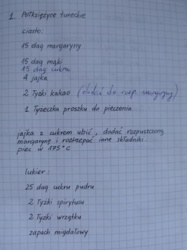 1. Półksiężyce tureckie
ciasto:
15 dag margaryny
15 dag mąki
15 dag cukru
4 jajka
2 łyżki kakao (dodać do rozp. margaryny)
1 łyżeczka proszku do pieczenia
jajka z cukrem ubić, dodać rozpuszczoną
margarynę i rozmieszać inne składniki
piec w 175°C
lukier:
25 dag cukru pudru
2 łyżki spirytusu
2 łyżki wrzątku
zapach migdałowy